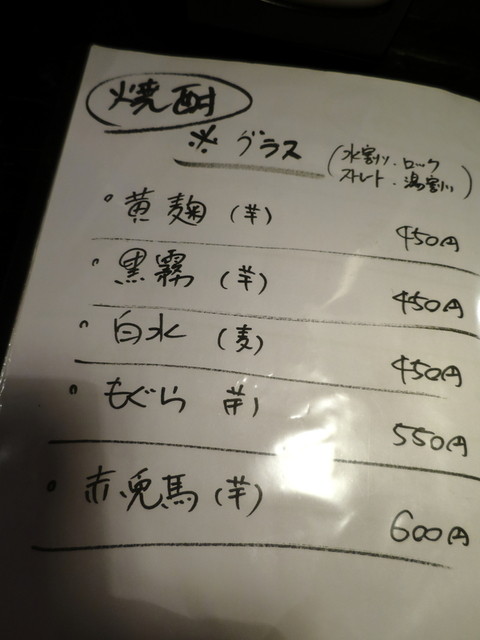 焼酎
※ グラス (水割り・ロック
ストレート・湯割り)
・黄麹 (芋) 450円
・黒霧 (芋) 450円
・白水 (麦) 450円
・もぐら (芋) 550円
・赤兎馬 (芋) 600円